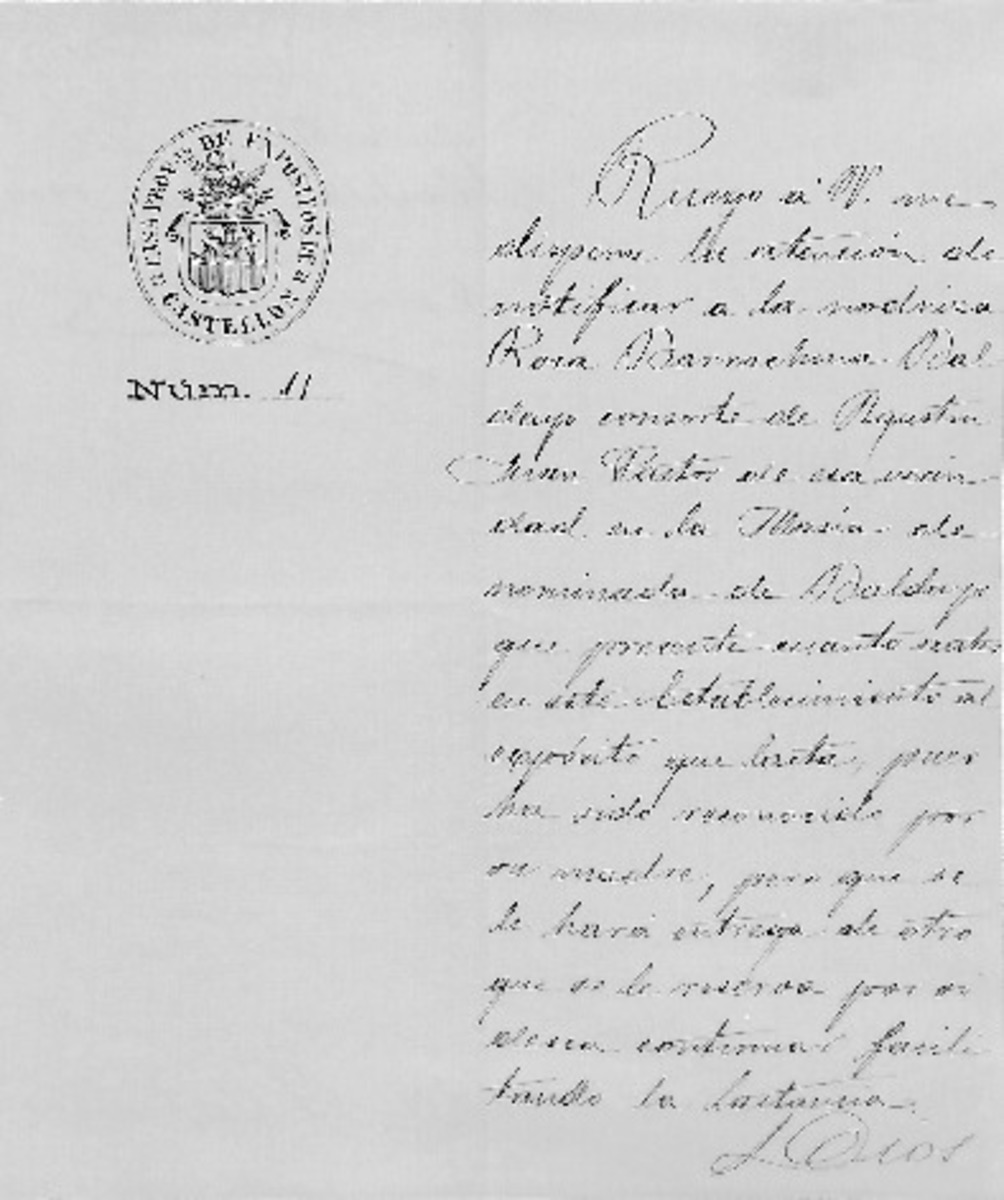 CASA PROV. DE EXPOSITOS DE CASTELLON
Núm. 11
Ruego á V. me
dispense la atención de
notificar a la nodriza
Rosa Barrachina Bal
dayo consorte de Agustin
de esa vecin
dad en la Masia de
nominada de Baldayo
que presente cuanto antes
en este Establecimiento al
expósito que lacta, pues
ha sido reconocido por
su madre, pero que se
le hará entrega de otro
que se le reserva por si
desea continuar facili
tando la lactancia.
Dios